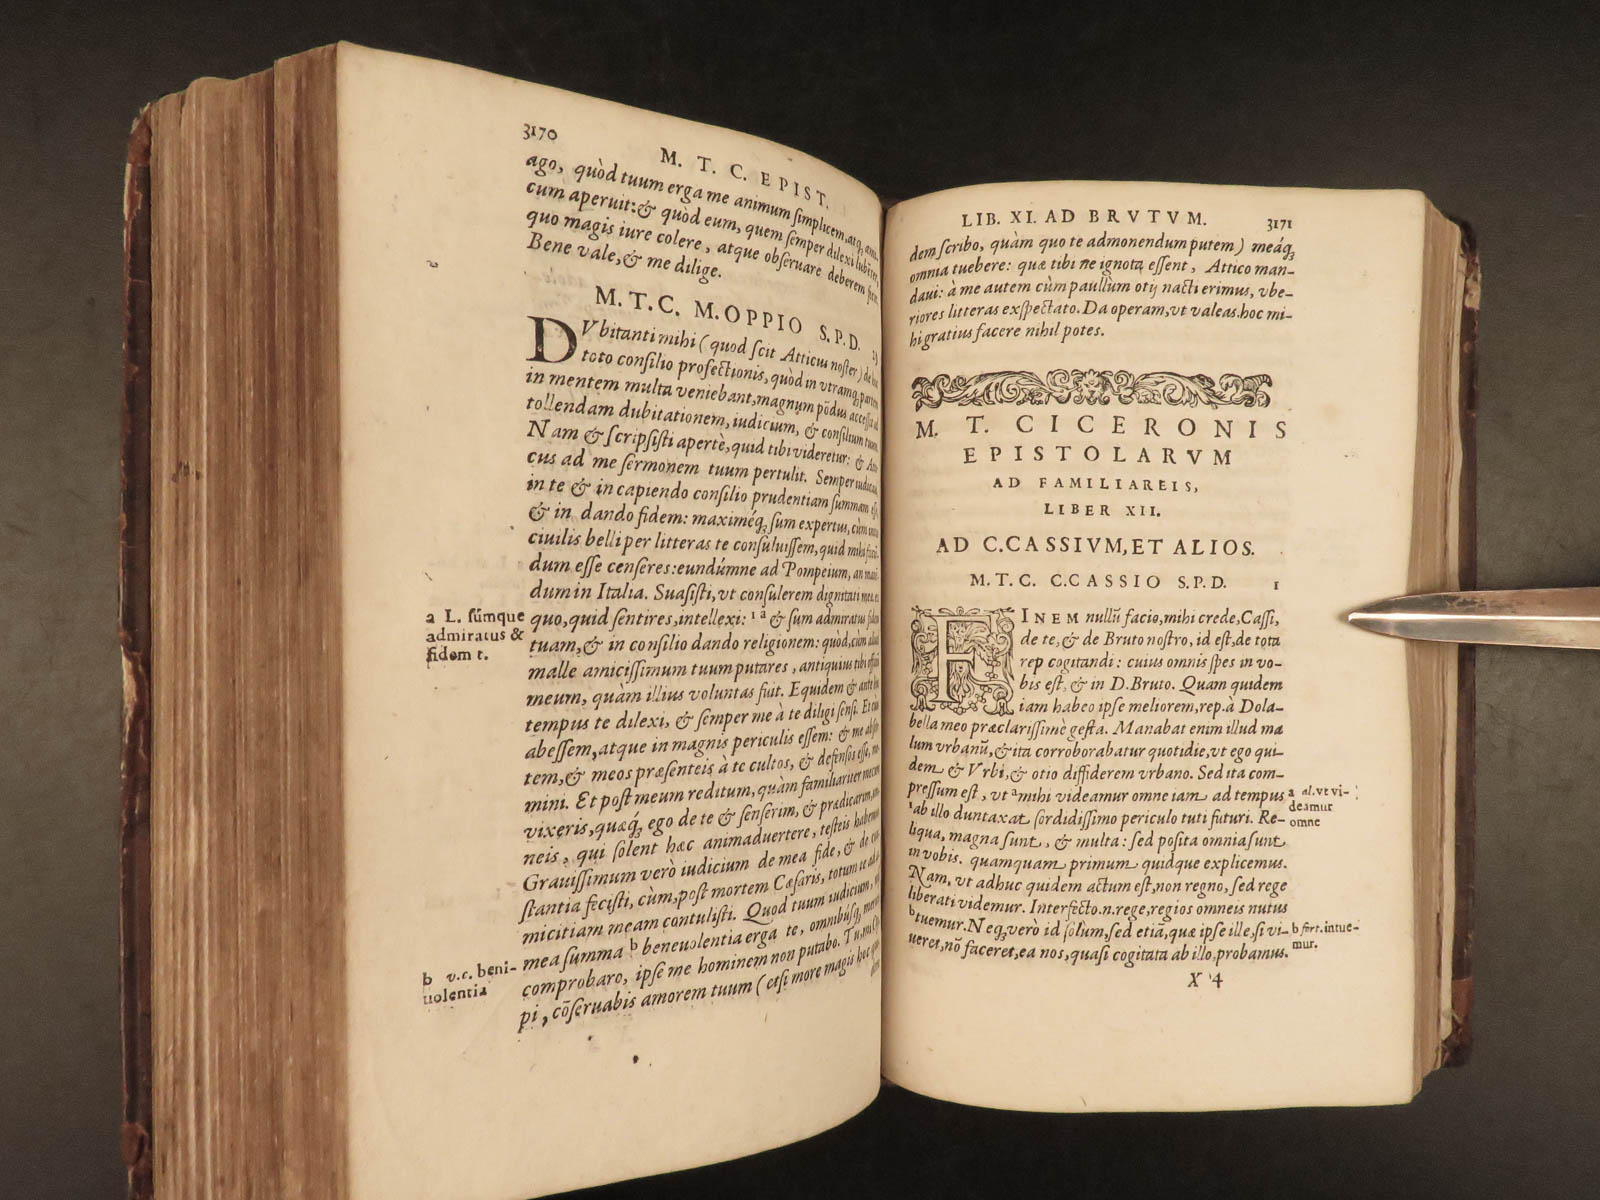 3170
M. T. C. EPIST.
ago, quòd tuum erga me animum simplicem, atq,
cum aperuit: & quòd eum, quem semper dilexi
quo magis iure colere, atque obseruare deberem
Bene vale, & me dilige.
M. T. C. M. OPPIO S. P. D.
DVbitanti mihi (quod scit Atticus noster) de hoc
toto consilio profectionis, quòd in vtramq, partem
in mentem multa veniebant, magnum põdus accessit ad
tollendam dubitationem, iudicium, & consilium tuum.
Nam & scripsisti apertè, quid tibi videretur: & Atti-
cus ad me sermonem tuum pertulit. Semper iudicaui
in te & in capiendo consilio prudentiam summam esse,
& in dando fidem: maximéq; sum expertus, cùm
ciuilis belli per litteras te consuluissem, quid mihi facié-
dum esse censeres: eundúmne ad Pompeium, an
dum in Italia. Suasisti, vt consulerem dignitati meæ. ex
a L. súmque
admiratus &
fidem t.
quo, quid sentires, intellexi: ¹ ª & sum admiratus fidem
tuam, & in consilio dando religionem: quòd, cùm aliud
malle amicissimum tuum putares, antiquius tibi officiũ
meum, quàm illius voluntas fuit. Equidem & ante hoc
tempus te dilexi, & semper me à te diligi sensi. Et cùm
abessem, atque in magnis periculis essem: & me absen-
tem, & meos præsenteis à te cultos, & defensos esse, me-
mini. Et post meum reditum, quàm familiariter mecum
vixeris, quæq́; ego de te & senserim, & prædicarim,
neis, qui solent hæc animaduertere, testeis habemus.
Grauissimum verò iudicium de mea fide, & de con-
stantia fecisti, cùm, post mortem Cæsaris, totum te ad
micitiam meam contulisti. Quod tuum iudicium,
b v.c. beni-
uolentia
mea summa ᵇ beneuolentia erga te, omnibúsq,
comprobaro, ipse me hominem non putabo. Tu, mi Op-
pi, cõseruabis amorem tuum (etsi more magis hoc
LIB. XI. AD BRVTVM.
3171
dem scribo, quàm quo te admonendum putem) meáq;
omnia tuebere: quæ tibi ne ignota essent, Attico man-
daui: à me autem cùm paullum otij nacti erimus, vbe-
riores litteras exspectato. Da operam, vt valeas. hoc mi-
hi gratius facere nihil potes.
M. T. CICERONIS
EPISTOLARVM
AD FAMILIAREIS,
LIBER XII.
AD C. CASSIVM, ET ALIOS.
M. T. C. C. CASSIO S. P. D. 1
FINEM nullũ facio, mihi crede, Cassi,
de te, & de Bruto nostro, id est, de tota
rep cogitandi: cuius omnis spes in vo-
bis est, & in D. Bruto. Quam quidem
iam habeo ipse meliorem, rep. à Dola-
bella meo præclarissimè gesta. Manabat enim illud ma
lum vrbanũ, & ita corroborabatur quotidie, vt ego qui-
dem & Vrbi, & otio diffiderem vrbano. Sed ita com-
pressum est, vt ª mihi videamur omne iam ad tempus
a al. vt vi-
deamur
omne
¹ab illo duntaxat sordidissimo periculo tuti futuri. Re-
liqua, magna sunt, & multa: sed posita omnia sunt
in vobis. quamquam primum quidque explicemus.
Nam, vt adhuc quidem actum est, non regno, sed rege
liberati videmur. Interfecto .n. rege, regios omneis nutus
ᵇtuemur. Neq, verò id solum, sed etiã, quæ ipse ille, si vi-
b fort. intue-
mur.
ueret, nõ faceret, ea nos, quasi cogitata ab illo, probamus.
X 4